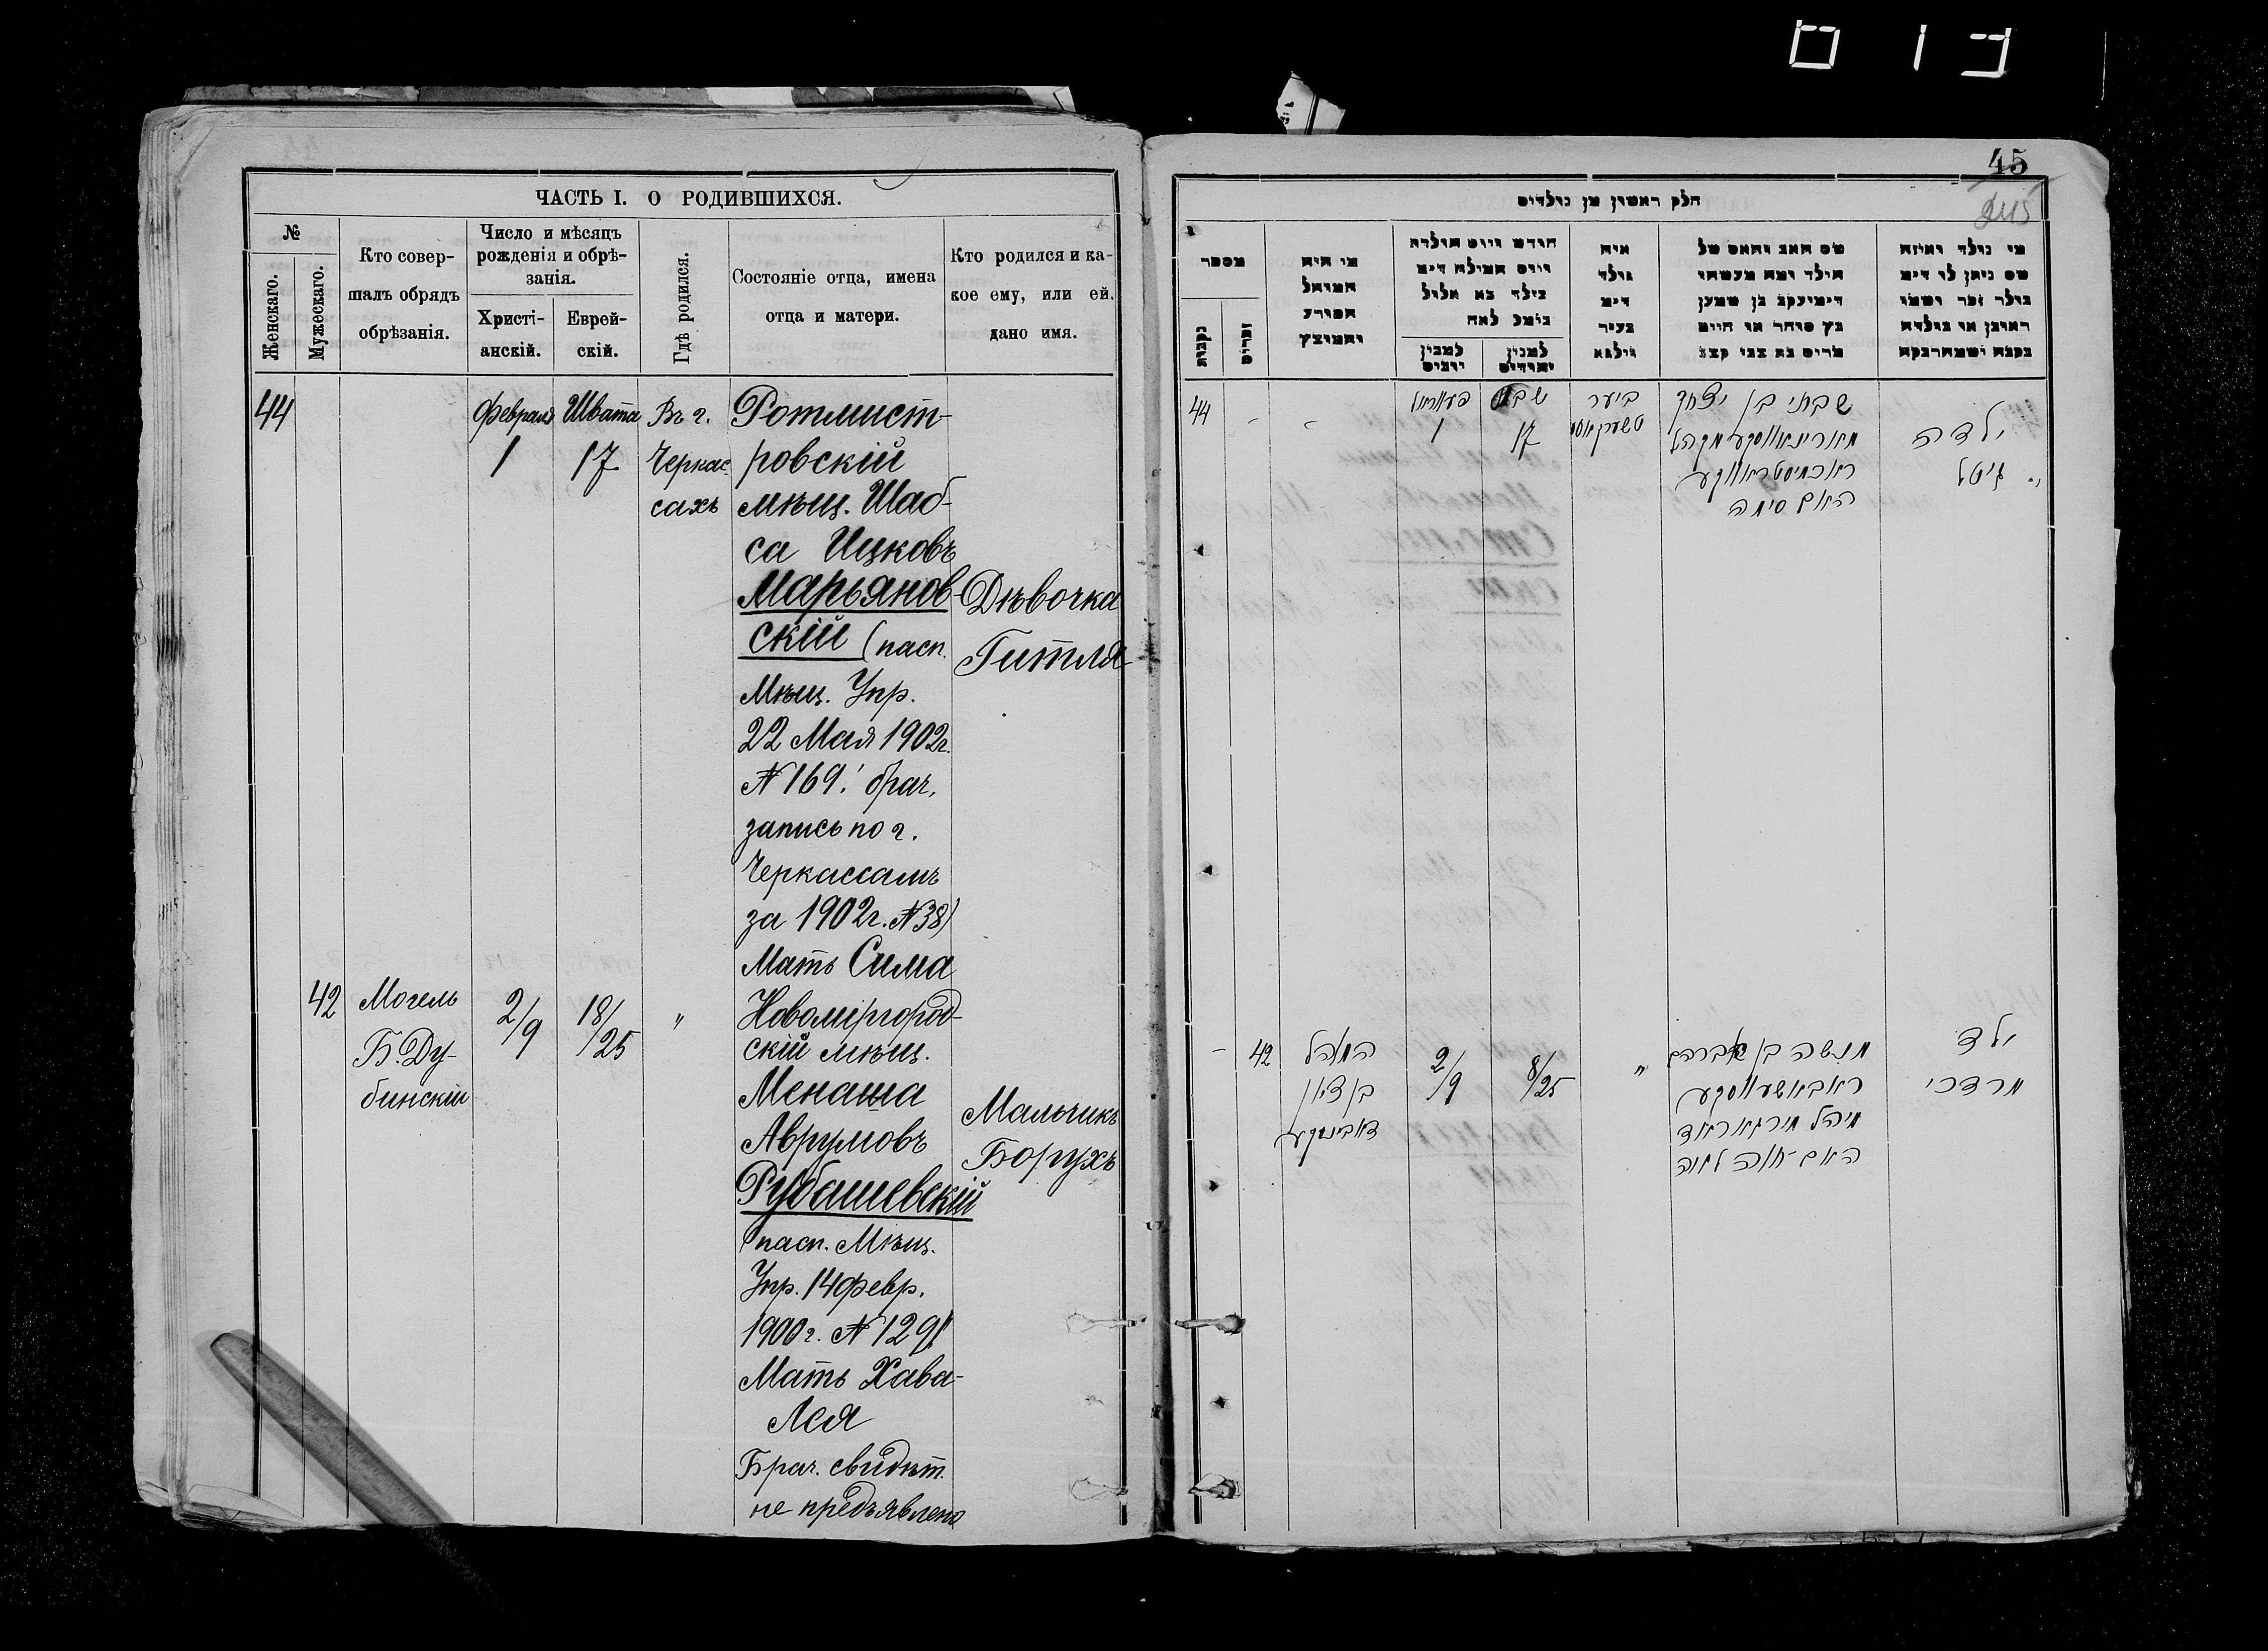 ЧАСТЬ I. О РОДИВШИХСЯ.
№
Женскаго.
Мужескаго.
Кто совер-
шалъ обрядъ
обрѣзанія.
Число и мѣсяцъ
рожденія и обрѣ-
занія.
Христі-
анскій.
Еврей-
скій.
Гдѣ родился.
Состояніе отца, имена
отца и матери.
Кто родился и ка-
кое ему, или ей.
дано имя.
44
Февраля
1
Швата
17
Въ г.
Черкас
сахъ
Ротмист-
ровскій
мѣщ. Шаб-
са Ицковъ
Марьянов-
скій (пасп.
Мѣщ. Упр.
22 Мая 1902г.
№ 169. брач.
запись по г.
Черкассамъ
за 1902г. №38)
Мать Сима
Дѣвочка
Гитля
42
Могель
Б. Ду-
бинскій
2/9
18/25
"
Новомиргород-
скій мѣщ.
Менаша
Аврумовъ
Рубашевскій
(пасп. Мѣщ.
Упр. 14 февр.
1900г. № 129)
Мать Хава-
Лея
Брач. свидѣт.
не предъявлено
Мальчикъ
Борухъ
45
חלק ראשון מן נולדים
מספר
נקבות
זכרים
מי היה
המוהל
חודש ויום הולדת
ויום המילה
למנין
למנין
יהודים
איה
נולד
שם האב והאם של
הילד ומה מעשהו
דימיעקב בן שמעון
מי נולד ואיזה
שם ניתן לו
44
-
-
1
שבט
17
ביער
שבתי בן יצחק
האם סימה
ילדה
גיטל
-
42
המוהל
בן ציון
2/9
8/25
"
מנשה בן אברהם
האם חוה לאה
ילד
מרדכי